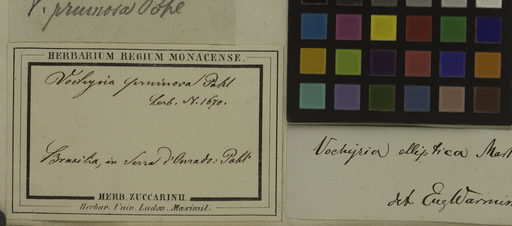 V. pruinosa Pohl
HERBARIUM REGIUM MONACENSE.
Vochysia pruinosa Pohl
herb. N. 1670.
Brasilia, in Serra d'Ourado: Pohl
HERB. ZUCCARINII
Herbar. Univ. Ludov. Maximil.
Vochysia elliptica Mart
det. Eug Warmin